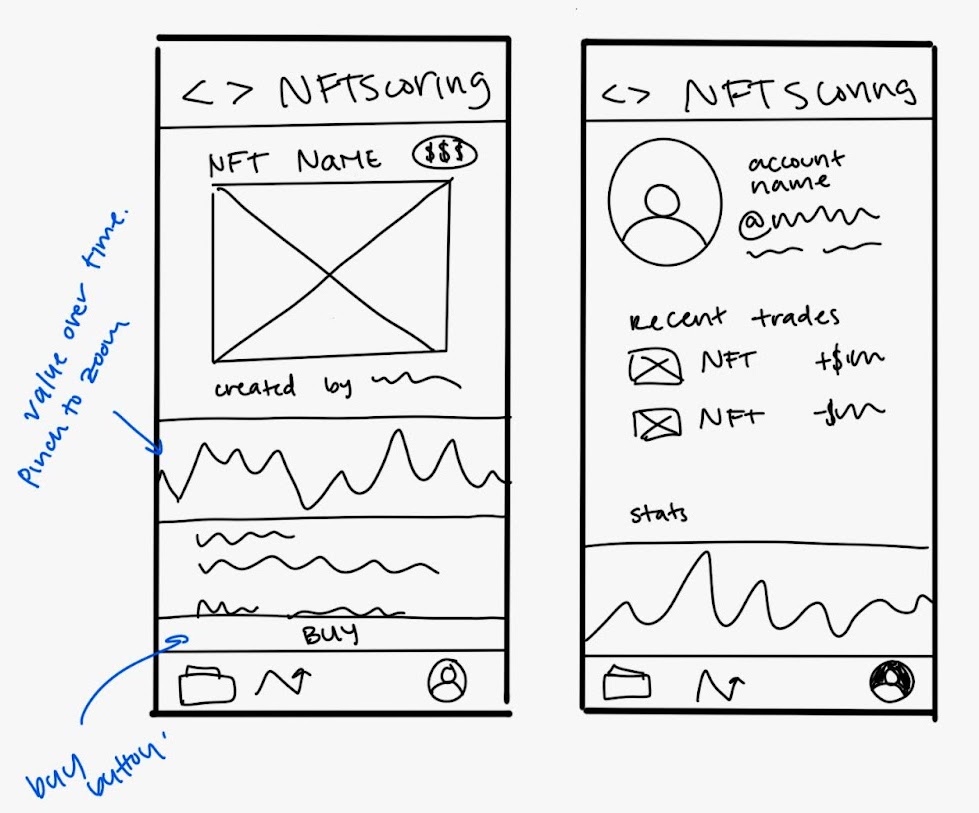 < > NFTScoring
NFT NAME $$$
created by
value over time.
Pinch to zoom
BUY
buy
button
<> NFTSCORING
account
name
@
Recent trades
NFT +$
NFT -$
stats